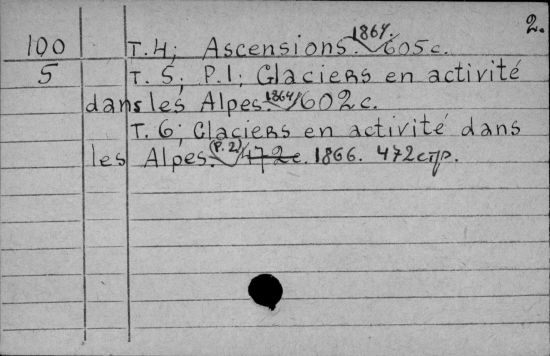 2.
100 T.4; Ascensions. 1864. 605 c.
5 T. 5, P.1; Glaciers en activité
dans les Alpes. 1864. 602 c.
T. 6; Glaciers en activité dans
les Alpes. (P. 2) 472 c. 1866. 472 стр.